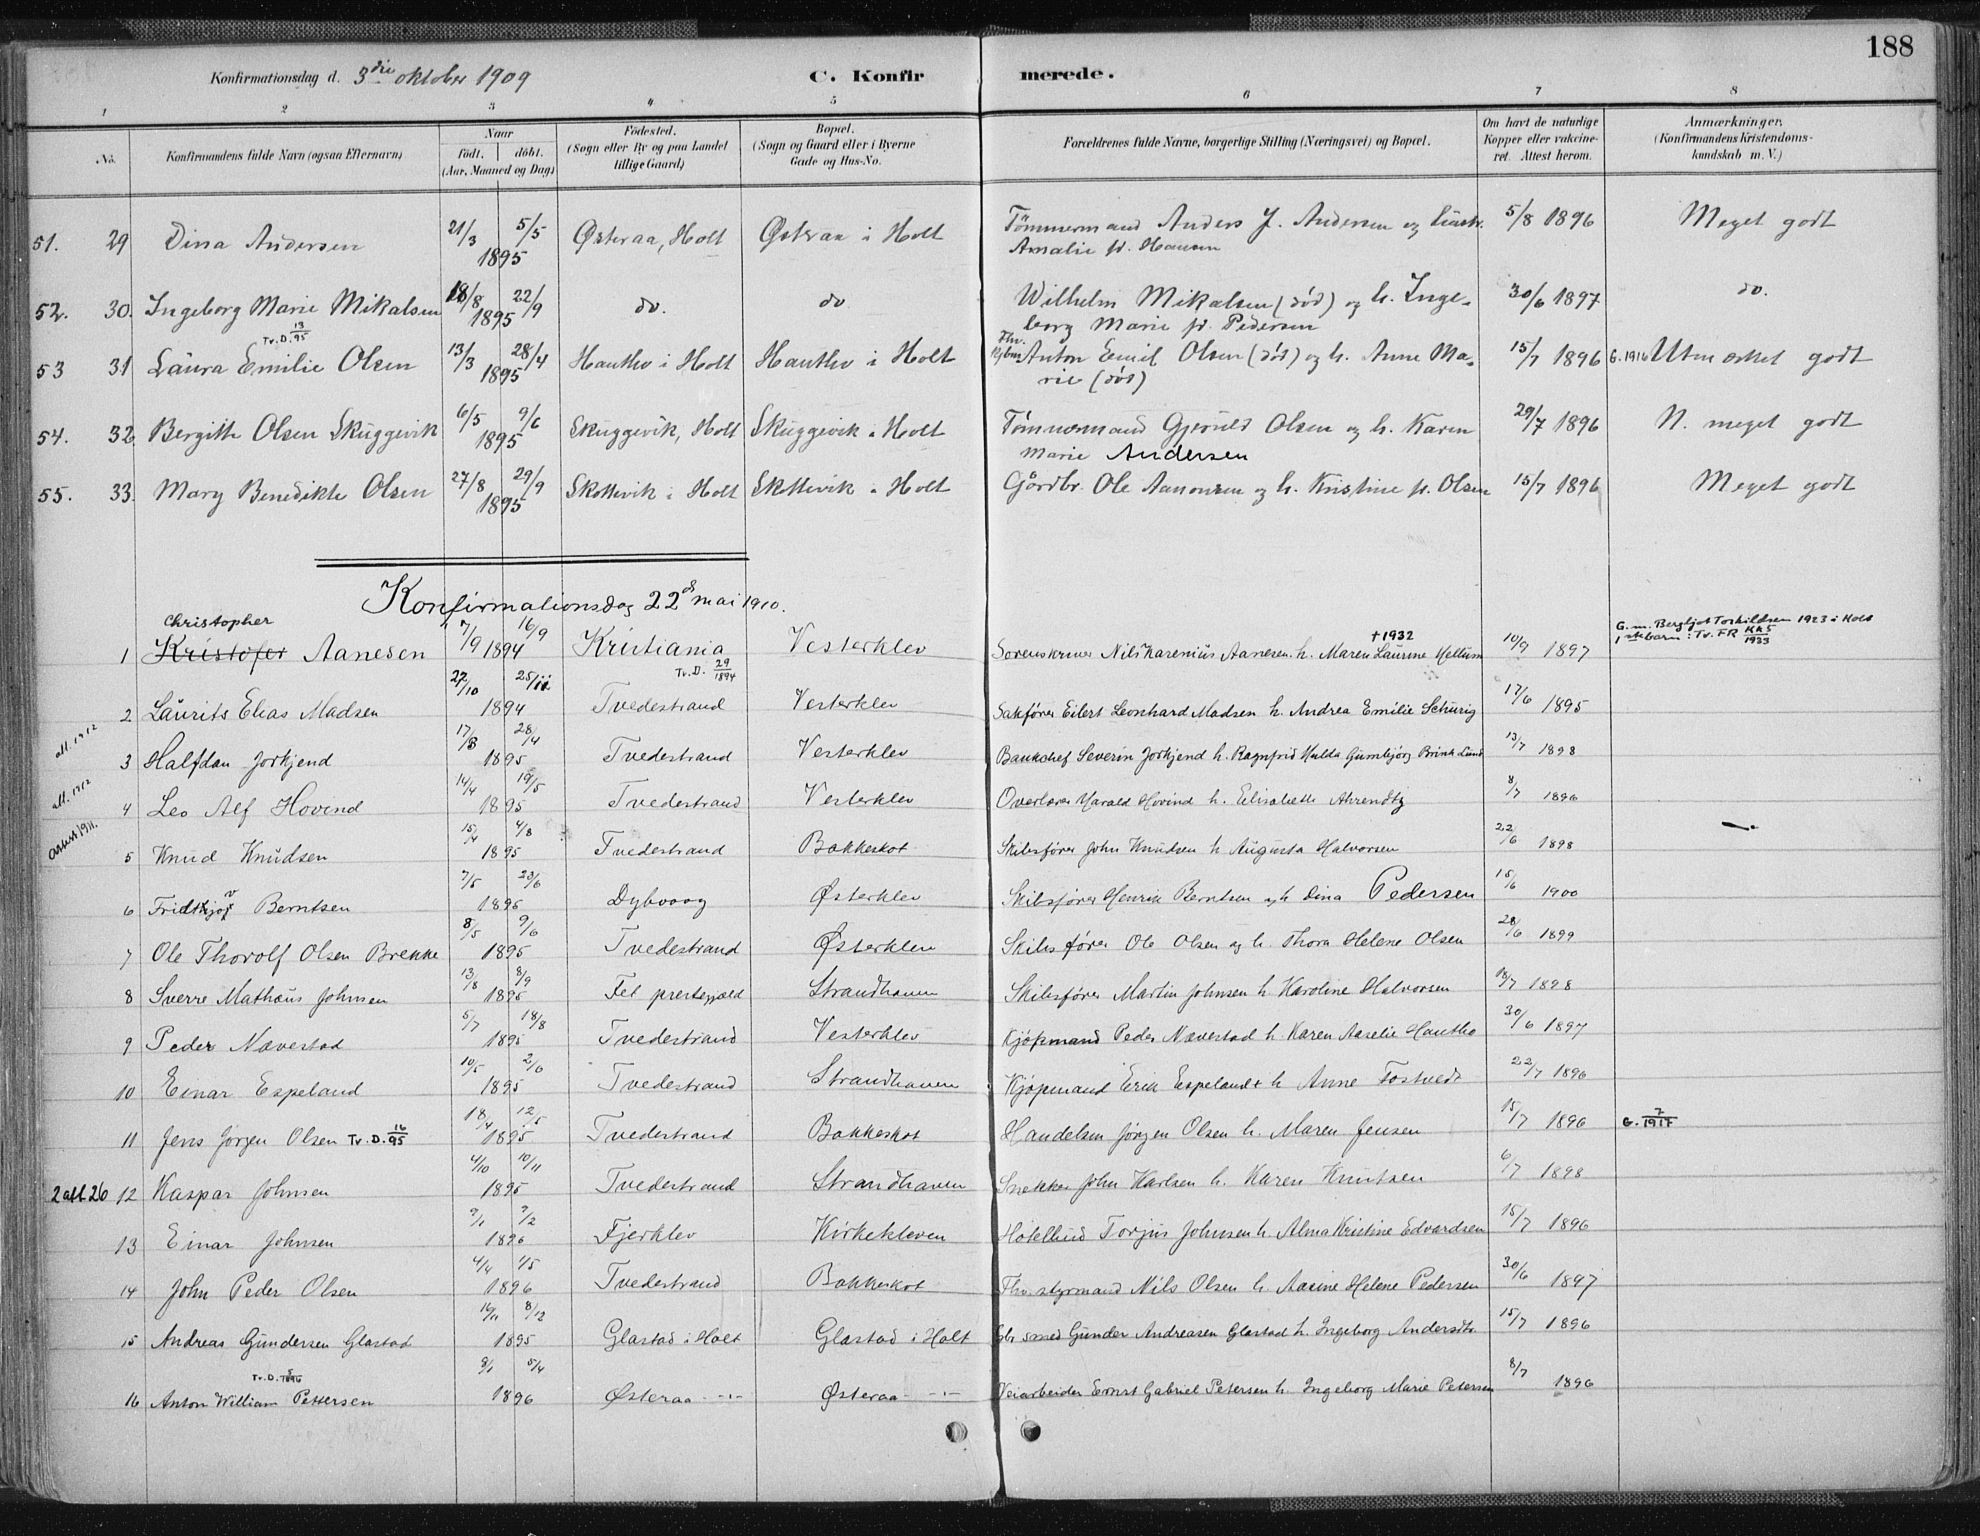 188
Konfirmationsdag d. 3die oktober 1909 C. Konfirmerede.
1 2 3 4 5 6 7 8
No. Konfirmandens fulde Navn (ogsaa Efternavn) Naar födt. döbt. (Aar, Maaned og Dag) Födested. (Sogn eller By og paa Landet tillige Gaard) Bopæl. (Sogn og Gaard eller i Byerne Gade og Hus-No. Forældrenes fulde Navne, borgerlige Stilling (Næringsvei) og Bopæl. Om havt de naturlige Kopper eller vakcineret. Attest herom. Anmærkninger. (Konfirmandens Kristendomskundskab m. V.)
51. 29 Dina Andersen 21/3 5/5 1895 Østeraa, Holt Østeraa i Holt Tömmermand Anders J. Andersen og hustr. Amalie f. Hansen 5/8 1896 Meget godt
52. 30. Ingeborg Marie Mikalsen 18/8 22/9 1895 do. do Wilhelm Mikalsen (död) og h. Ingeborg Marie f. Pedersen 30/6 1897 do.
53 31 Laura Emilie Olsen Tv.D. 13/95 13/3 28/4 1895 Hantho i Holt Hantho i Holt Fhv. Anton Emil Olsen (död) og h. Anne Marie (död) 15/7 1896 G.1916 Utmerket godt
54. 32. Bergitte Olsen Skuggevik 6/5 9/6 1895 Skuggevik, Holt Skuggevik i Holt Tømmermand Gjeruld Olsen og h. Karen Marie Andersen 29/7 1896 N. meget godt
55. 33. Mary Benedikte Olsen 27/8 29/9 1895 Skottevik i Holt Skottevik i Holt Gårdbr. Ole Aanonsen og h. Kristine f. Olsen 15/7 1896 Meget godt
Konfirmationsdag 22d mai 1910.
1 Christopher Kristofer Aanesen 7/9 16/9 1894 Kristiania Vesterklev Sorenskriver Nils Karenius Aanesen h. Maren Laurine Mellum +1932 10/9 1897 G.m. Bergljot Torkildsen 1923 i Holt 1 stebarn: Tv. FR KK5 1933
2 Laurits Elias Madsen 27/10 25/11 1894 Tv.D. 29/1894 Tvedestrand Vesterklev Sakfører Eilert Leonhard Madsen h. Andrea Emilie Schurig 17/6 1895
att. 1912 3 Halfdan Jorkjend 17/3 28/4 1895 Tvedestrand Vesterklev Bankchef Severin Jorkjend h. Ragnfrid Hulda Gunnbjørg Brink Lund 13/7 1898
att. 1912 4 Leo Alf Hovind 14/4 19/5 1895 Tvedestrand Vesterklev Overlærer Harald Hovind h. Elisabeth Ahrendtz 8/7 1896
attest 1911. 5 Knud Knudsen 15/4 4/8 1895 Tvedestrand Bakkeskot Skibsfører John Knudsen h. Augusta Halvorsen 22/6 1898 —
6 Fridthjov Berntsen 7/5 23/6 1895 Dybvaag Østerklev Skibsfører Henrik Berntsen og h Dina Pedersen 15/6 1900
7 Ole Thorolf Olsen Brekke 8/5 9/6 1895 Tvedestrand Østerklev Skibsfører Ole Olsen og h. Thora Helene Olsen 28/6 1899
8 Sverre Mathæus Johnsen 13/8 8/9 1895 Fet prestegjæld Strandhaven Skibsfører Martin Johnsen h. Karoline Halvorsen 18/7 1898
9 Peder Nævestad 5/7 18/8 1895 Tvedestrand Vesterklev Kjøpmand Peder Nævestad h. Karen Aaselie Hantho 30/6 1897
10 Einar Espeland 10/5 2/6 1895 Tvedestrand Strandhaven Kjøpmand Erik Espeland h Anne Fostvedt 22/7 1896
11 Jens Jørgen Olsen Tv.D. 16/95 18/4 12/5 1895 Tvedestrand Bakkeskot Handelsm Jørgen Olsen h. Maren Jensen 15/7 1896 G. 7/1917
2 att 26 12 Kaspar Johnsen 4/10 10/11 1895 Tvedestrand Strandhaven Snekker John Karlsen h. Karen Knutsen 6/7 1898
13 Einar Johnsen 9/1 9/2 1896 Fjerklev Kirkekleven Hotelbud Torjus Johnsen h. Alma Kristine Edvardsen 15/7 1896
14 John Peder Olsen 4/4 1/5 1896 Tvedestrand Bakkeskot Fhv. styrmand Nils Olsen h. Aasine Helene Pedersen 30/6 1897
15 Andreas Gundersen Glastad 16/11 8/12 1895 Glastad i Holt Glastad i Holt Gbr. smed Gunder Andreasen Glastad h. Ingeborg Andersdtr. 15/7 1896
16 Anton William Pettersen Tv.D. 5/1896 8/1 5/4 1896 Østeraa -"- Østeraa -"- Veiarbeider Ernst Gabriel Petersen h. Ingeborg Marie Petersen 8/7 1896